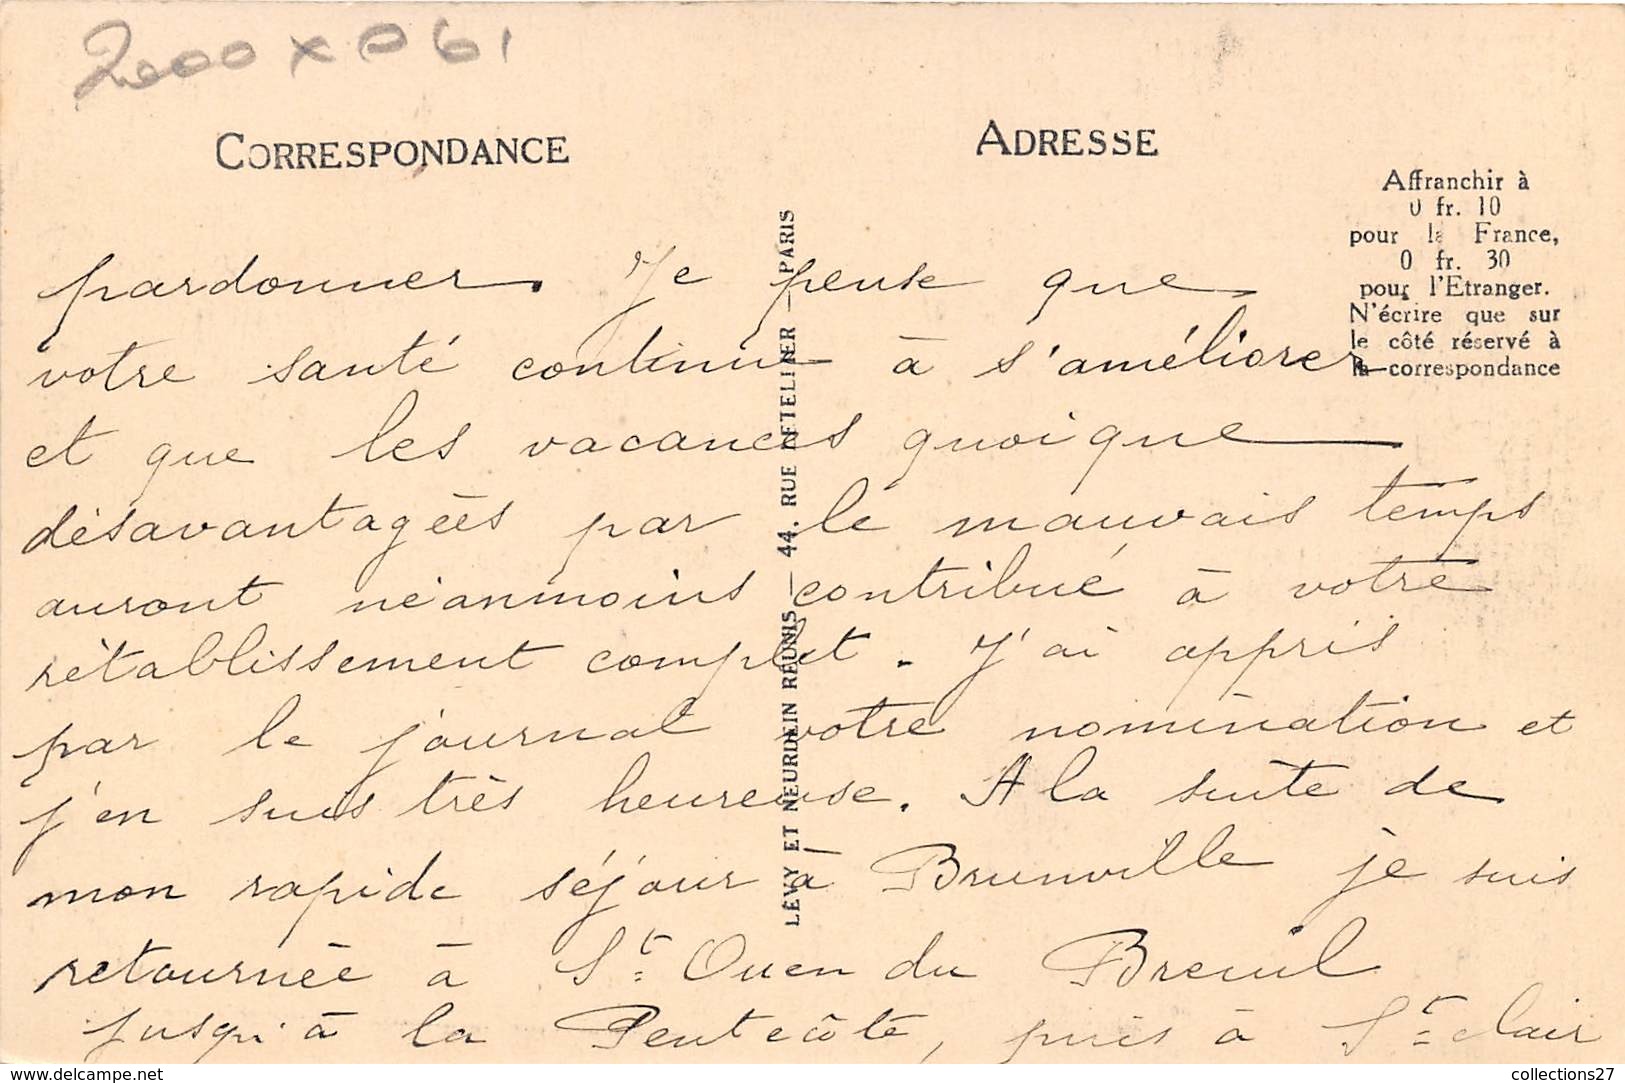 2000 x P 61
CORRESPONDANCE
ADRESSE
Affranchir à
0 fr. 10
pour la France,
0 fr. 30
pour l'Etranger.
N'écrire que sur
le côté réservé à
la correspondance
LÉVY ET NEURDEIN RÉUNIS — 44, RUE LETELLIER — PARIS
pardonner. Je pense que
votre santé continue à s'améliorer
et que les vacances quoique
désavantagées par le mauvais temps
auront néanmoins contribué à votre
rétablissement complet. J'ai appris
par le journal votre nomination et
j'en suis très heureuse. A la suite de
mon rapide séjour à Brunville je suis
retournée à St Ouen du Breuil
jusqu'à la Pentecôte, puis à St clair
https://www.delcampe.net
collections27